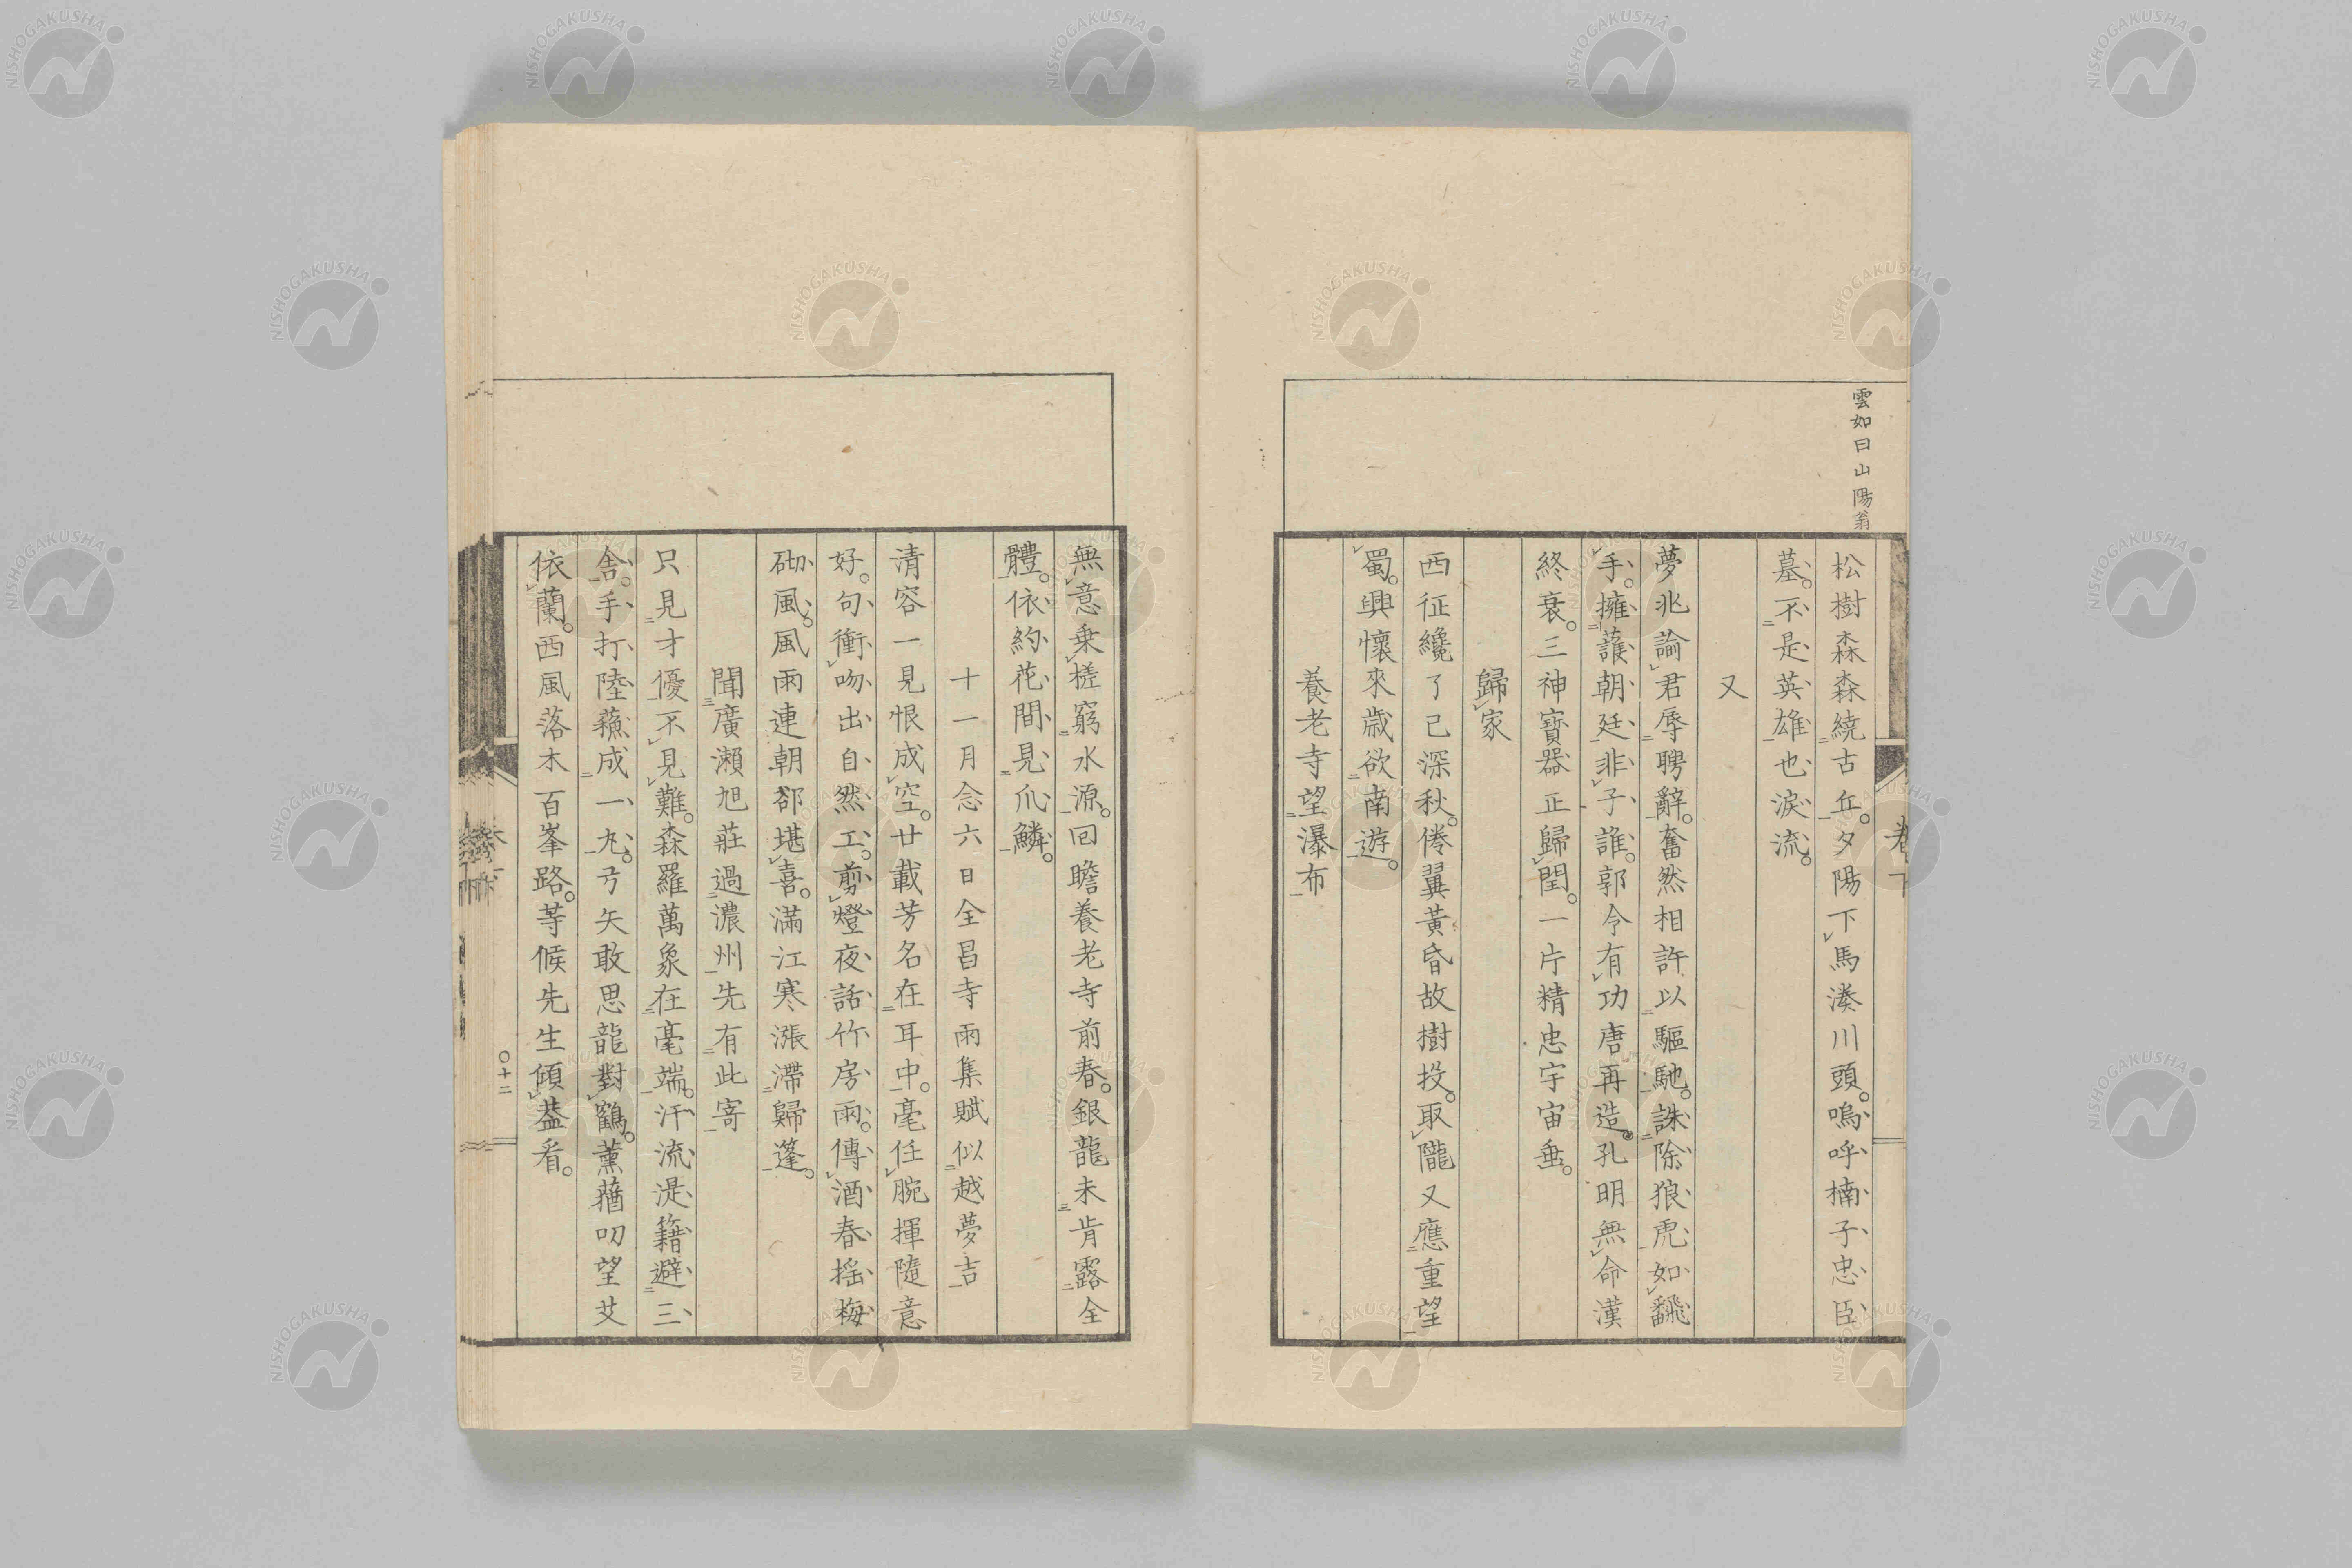 雲如曰山陽翁
松樹森森繞古丘。夕陽下馬湊川頭。嗚呼楠子忠臣
墓。不是英雄也淚流。
又
夢兆諭君辱聘辭。奮然相許以驅馳。誅除狼虎如飜
手。擁護朝廷非子誰。郭令有功唐再造。孔明無命漢
終衰。三神寶器正歸閏。一片精忠宇宙垂。
歸家
西征纔了已深秋。倦翼黃昏故樹投。取隴又應重望
蜀。興懷來歲欲南遊。
養老寺望瀑布
卷下
無意乗槎窮水源。回瞻養老寺前春。銀龍未肯露全
體。依約花間見爪鱗。
十一月念六日全昌寺雨集賦似越夢吉
清容一見恨成空。廿載芳名在耳中。毫任腕揮隨意
好。句衝吻出自然工。剪燈夜話竹房雨。傳酒春搖梅
砌風。風雨連朝郤堪喜。滿江寒漲滯歸篷。
聞廣瀨旭莊過濃州先有此寄
只見才優不見難。森羅萬象在毫端。汗流湜籍避三
舎。手打陸蘓成一丸。弓矢敢思龍對鶴。薰蕕叨望艾
依蘭。西風落木百峯路。等候先生傾葢看。
〇十二
NISHOGAKUSHA